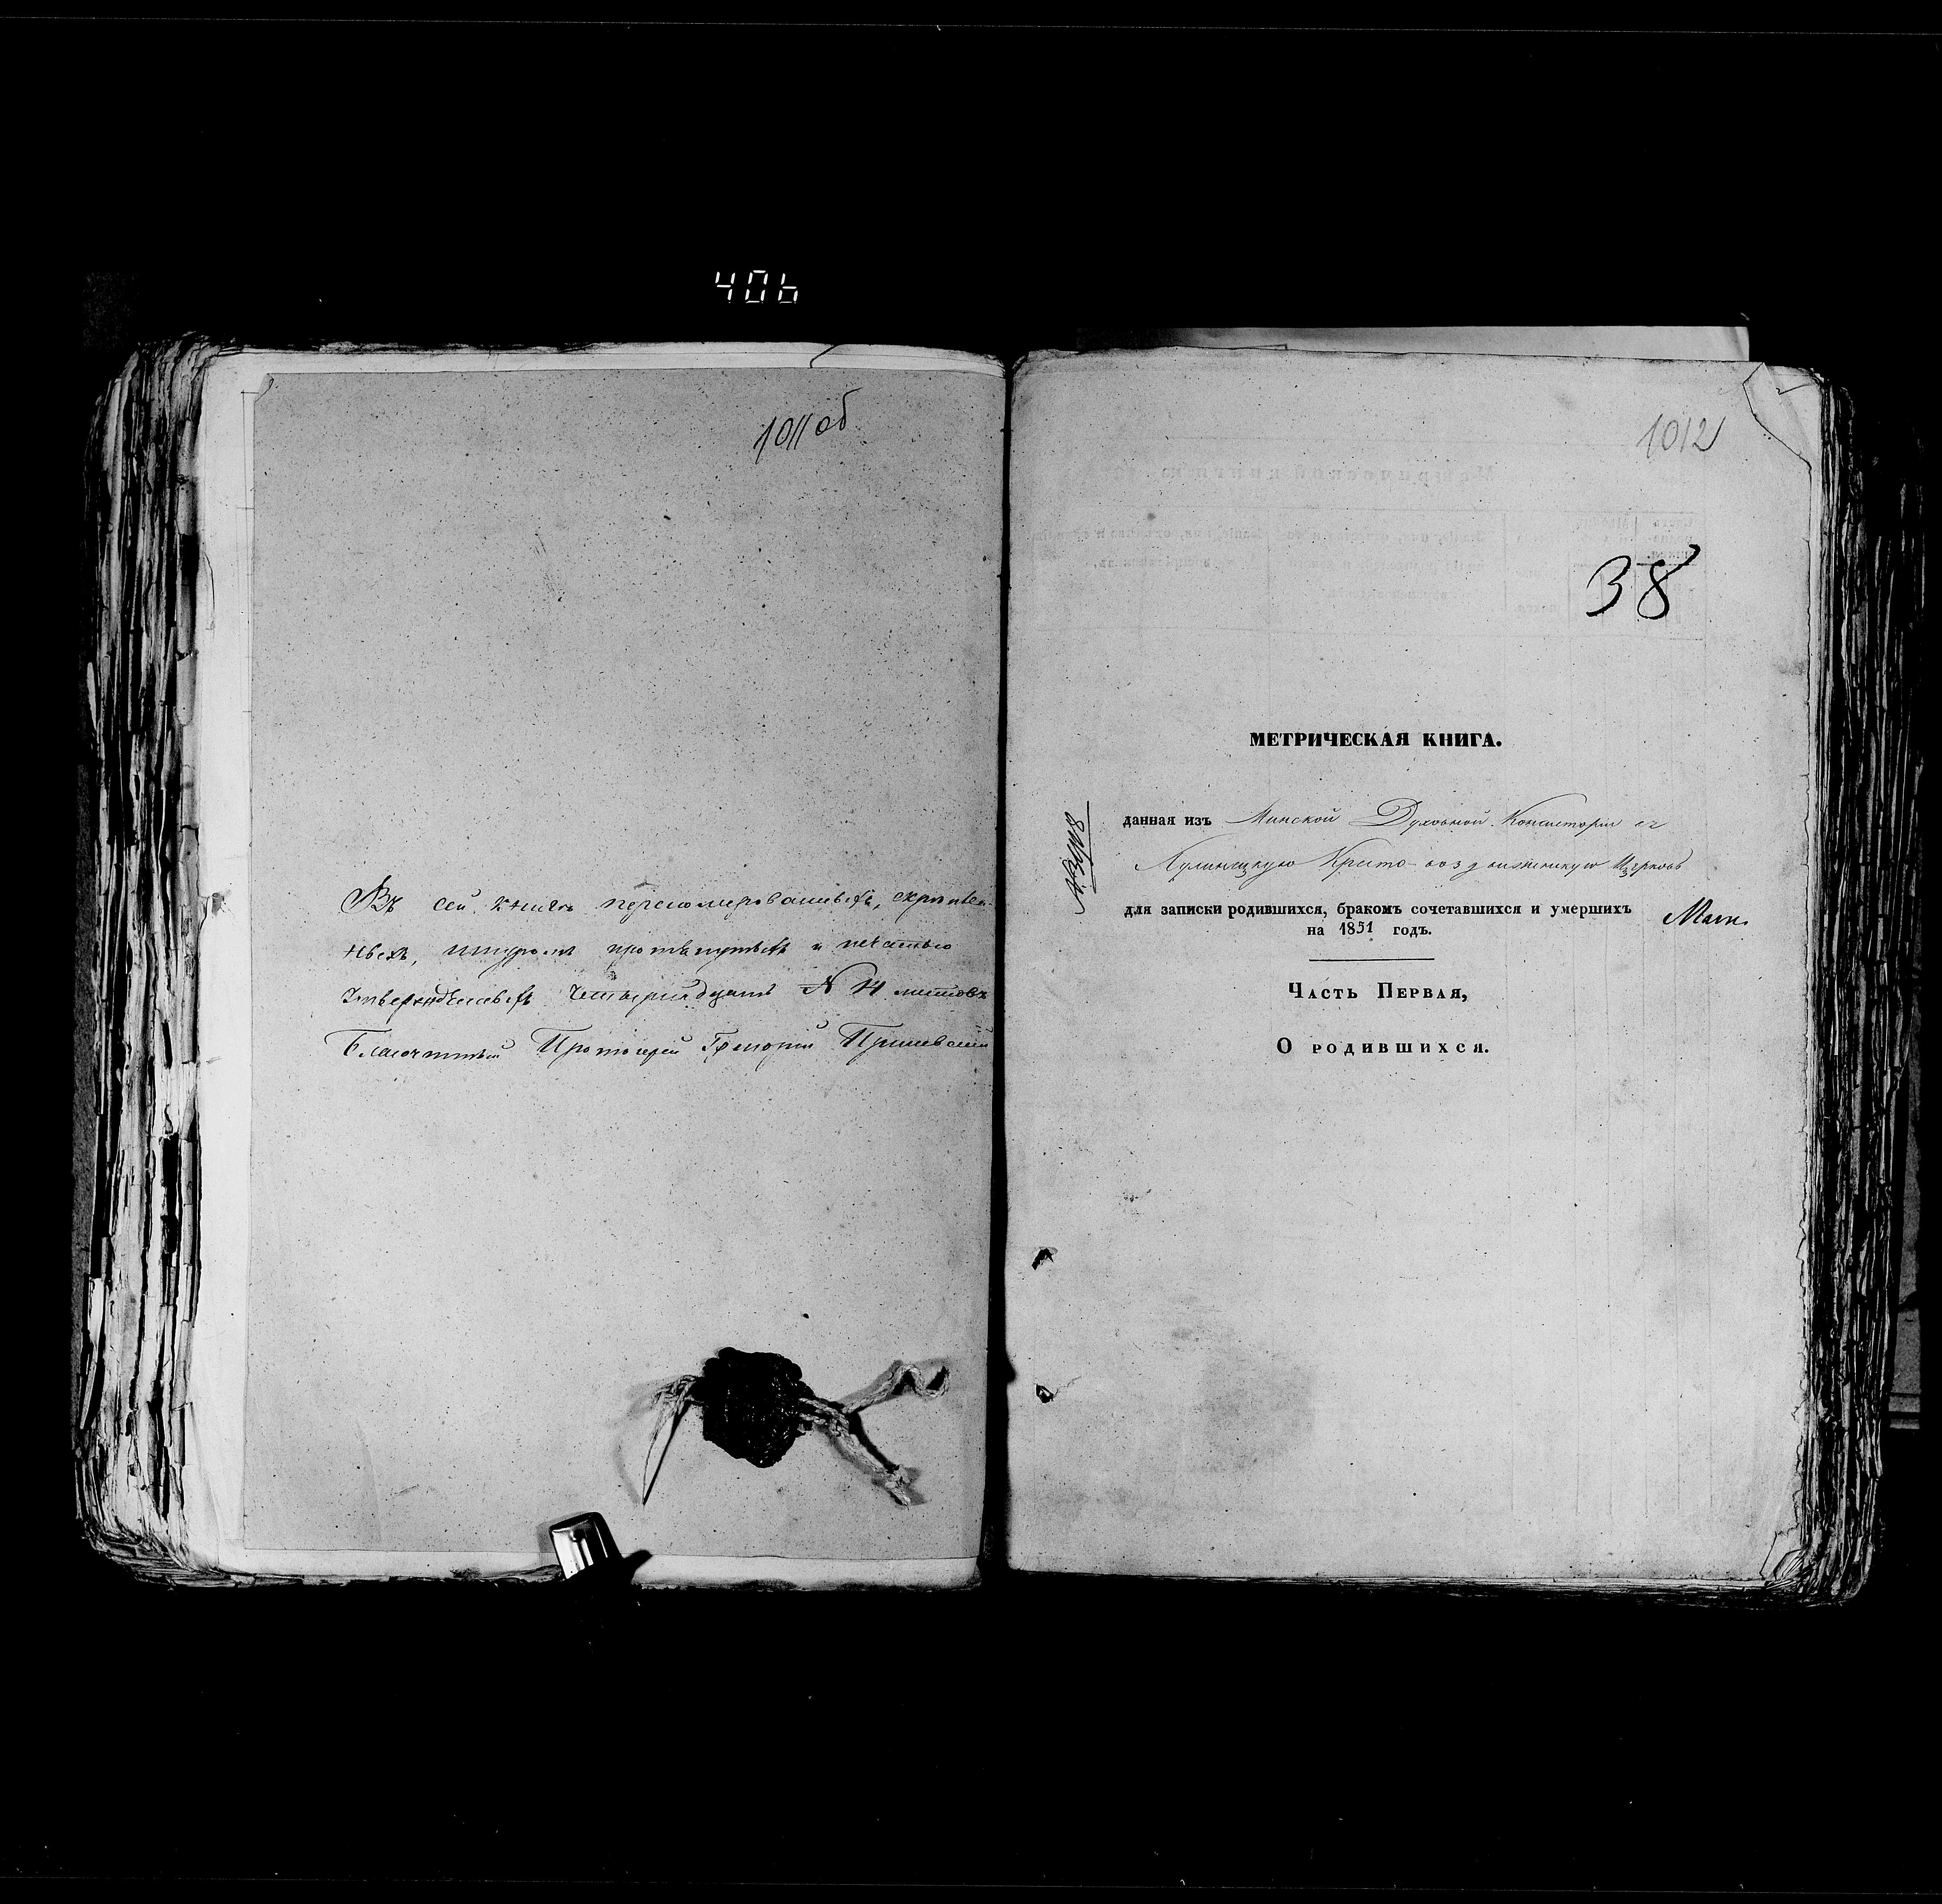 406
1011 об
Въ сей книгѣ перенумерованныхъ, скрѣплен-
ныхъ, шнуромъ протянутыхъ и печатью
утвержденныхъ четырнадцать № 14 листовъ
Благочинный Протоіерей Григорій
1012
38
МЕТРИЧЕСКАЯ КНИГА.
данная изъ Минской Духовной Консисторіи въ
Кресто-воздвиженскую Церковь
для записки родившихся, бракомъ сочетавшихся и умершихъ
на 1851 годъ.
Часть Первая,
О родившихся.